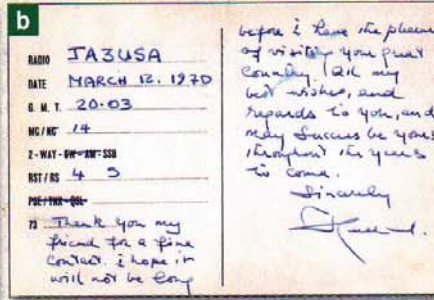 b
RADIO JA3USA
DATE MARCH 12. 1970
G. M. T. 20.03
MC/KC 14
2-WAY-CW-AM-SSB
RST/RS 4 5
PSE/TNX-QSL
73 Thank you my
friend for a fine
contact. i hope it
will not be long
before i have the pleasure
of visiting your great
country. All my
best wishes, and
regards to you, and
may success be yours
throughout the years
to come.
Sincerely